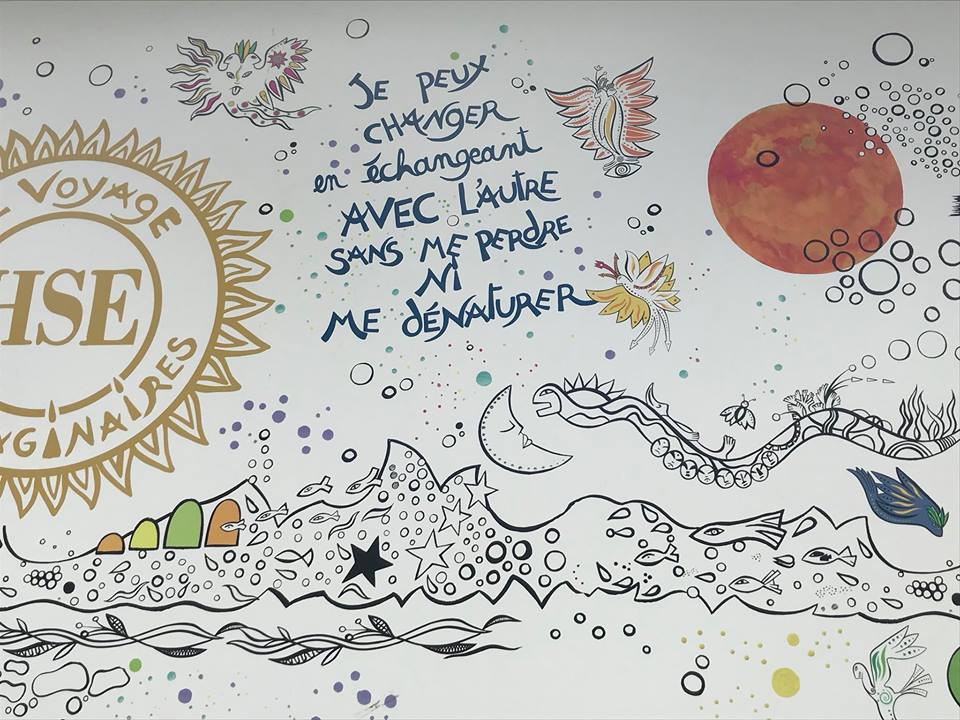 JE PEUX
CHANGER
en échangeant
AVEC L'AUTRE
SANS ME PERDRE
NI
ME DÉNATURER
VOYAGE
HSE